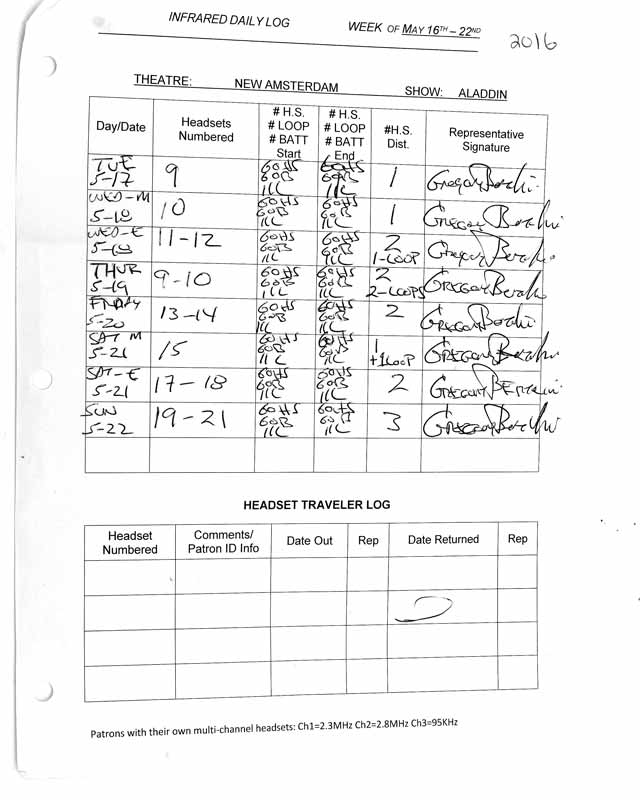 INFRARED DAILY LOG WEEK OF MAY 16TH – 22ND
2016
THEATRE: NEW AMSTERDAM SHOW: ALADDIN
Day/Date
Headsets
Numbered
# H.S.
# LOOP
# BATT
Start
# H.S.
# LOOP
# BATT
End
#H.S.
Dist.
Representative
Signature
TUE
5-17
9
60HS
60B
11L
60HS
60B
11L
1
Gregory
WED-M
5-18
10
60HS
60B
11L
60HS
60B
11L
1
GREGORY
WED-E
5-18
11-12
60HS
60B
11L
60HS
60B
11L
2
1-LOOP
Gregory
THUR
5-19
9-10
60HS
60B
11L
60HS
60B
11L
2
2-LOOPS
GREGORY
FRIDAY
5-20
13-14
60HS
60B
11L
60HS
60B
11L
2
GREGORY
SAT M
5-21
15
60HS
60B
11L
60HS
60B
11L
1
+1LOOP
GREGORY
SAT-E
5-21
17-18
60HS
60B
11L
60HS
60B
11L
2
GREGORY
SUN
5-22
19-21
60HS
60B
11L
60HS
60B
11L
3
GREGORY
HEADSET TRAVELER LOG
Headset
Numbered
Comments/
Patron ID Info
Date Out
Rep
Date Returned
Rep
Patrons with their own multi-channel headsets: Ch1=2.3MHz Ch2=2.8MHz Ch3=95KHz